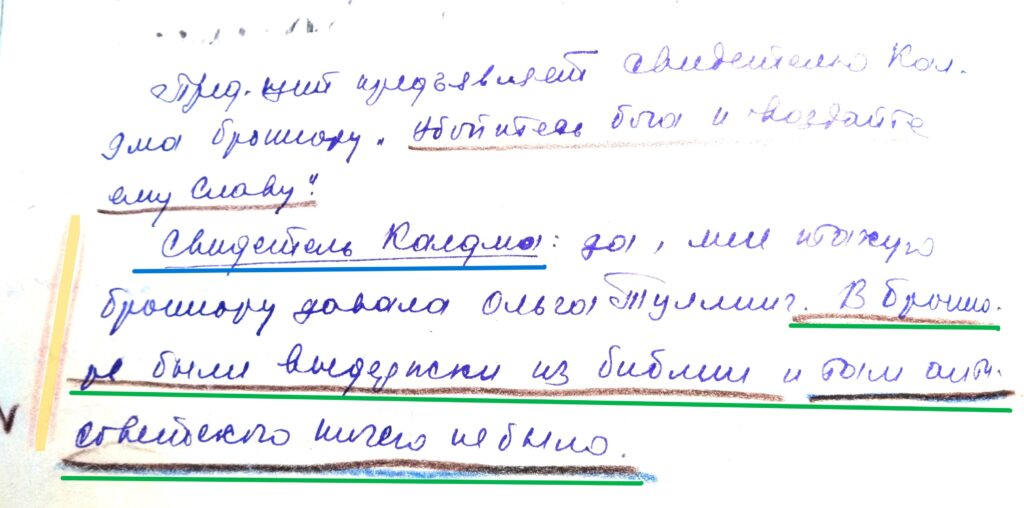 Пред-щий предъявляет свидетелю Кал-
дма брошюру. „Убойтесь бога и воздайте
ему славу".
Свидетель Калдма: да, мне такую
брошюру давала Ольга Туллинг. В брошю-
ре были выдержки из библии и там анти-
советского ничего не было.